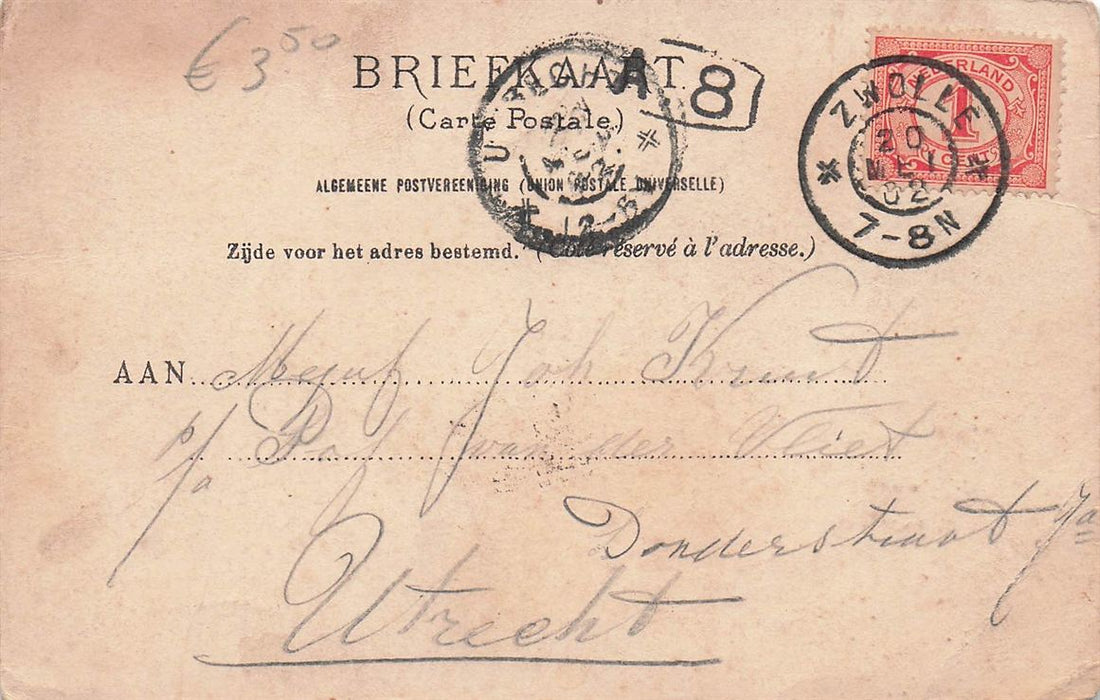 € 3 50
BRIEFKAART.
(Carte Postale.)
ALGEMEENE POSTVEREENIGING (UNION POSTALE UNIVERSELLE)
Zijde voor het adres bestemd. (Côté réservé à l'adresse.)
A 8
NEDERLAND
1
CENT
ZWOLLE
20
MEI
02
7-8N
AAN Mejuf Joh
p/a van der Vliet
Donderstraat 7a
Utrecht